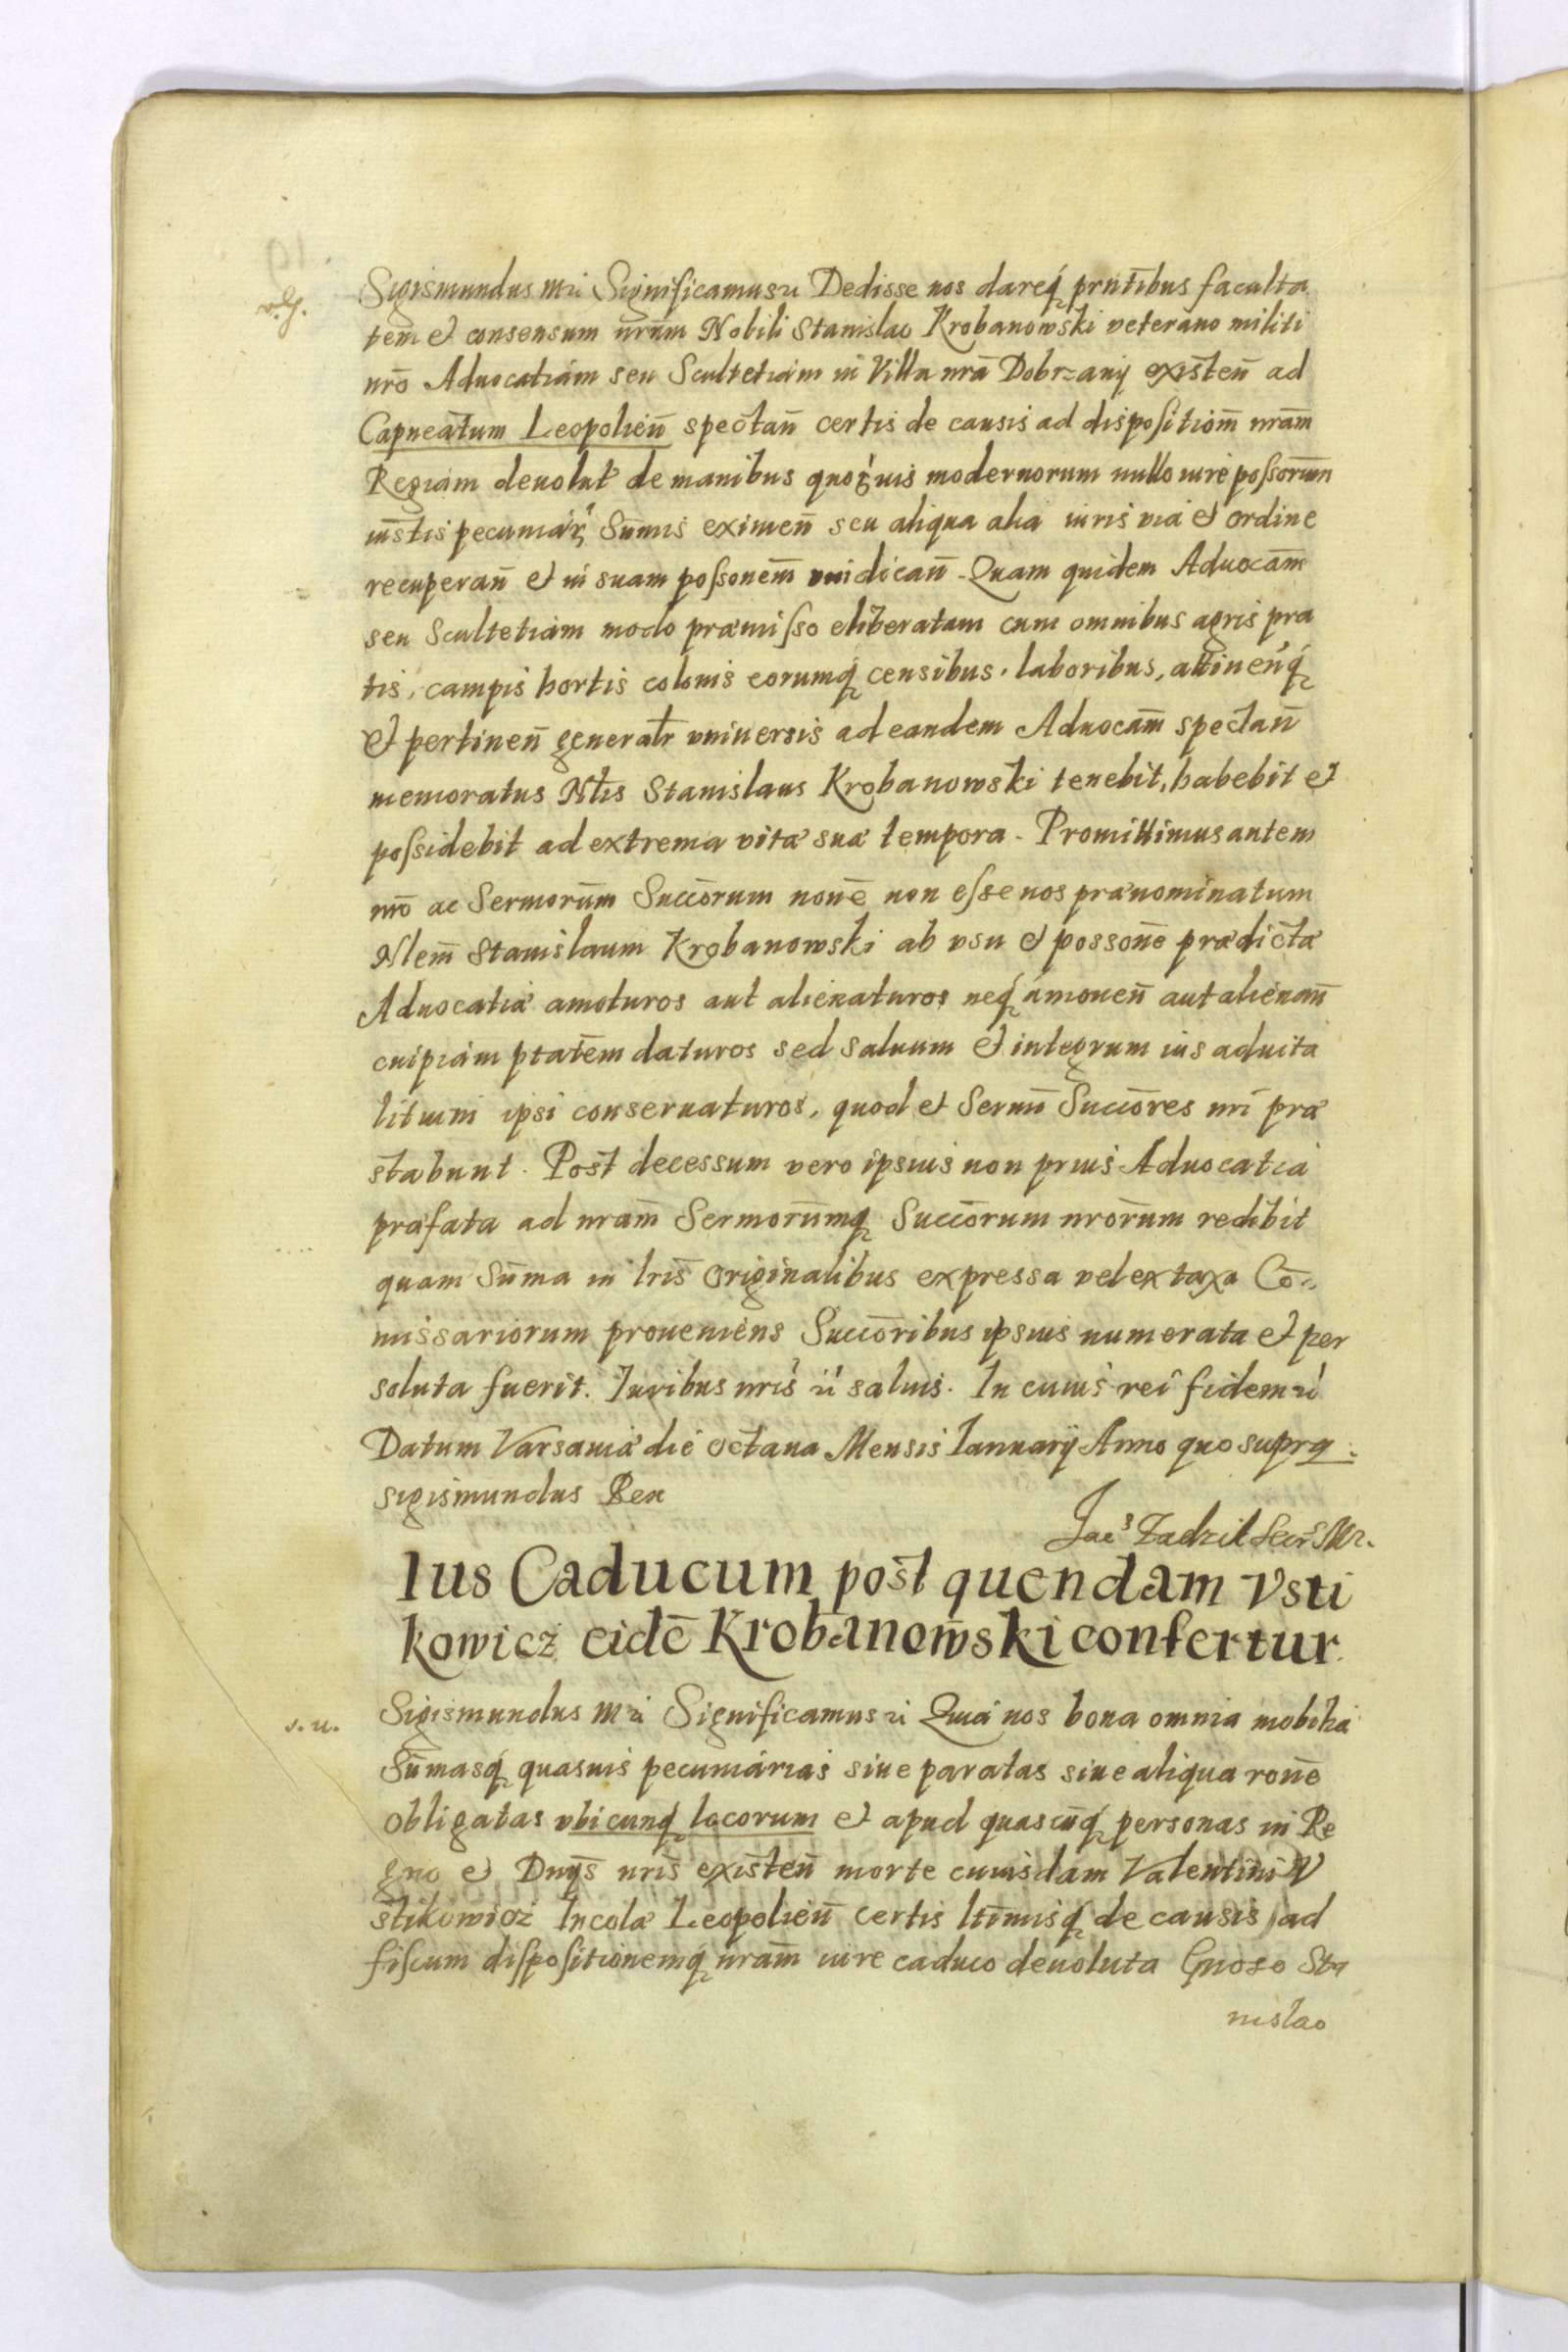 Sigismundus mr̃ Significamus r̃ Dedisse nos dareq́ prñtibus faculta
tem et consensum nrũm Nobili Stanislao Krobanowski veterano militi
nrõ Aduocatiam seu Scultetiam in Villa nrã Dobrzany existeñ ad
Capneãtum Leopolieñ spectañ certis de causis ad dispositiom̃ nrãm
Regiam deuolut̃ de manibus quoruis modernorum nullo iure possorũm
iustis pecuniar̃ Sum̃is eximeñ seu aliqua alia iuris via et ordine
recuperañ et in suam possonem̃ vindicañ. Quam quidem Aduocãm
seu Scultetiam modo præmisso eliberatam cum omnibus agris pra
tis, campis hortis colonis eorumq́ censibus, laboribus, attineñq́
et pertineñ generalr̃ vniuersis ad eandem Aduocam̃ spectañ
memoratus Nlis Stanislaus Krobanowski tenebit, habebit et
possidebit ad extrema vitæ suæ tempora. Promittimus autem
nrõ ac Sermorũm Succõrum noñe non esse nos prænominatum
Nlem̃ Stanislaum Krobanowski ab vsu et possoñe prædictæ
Aduocatiæ amoturos aut alienaturos neq́ amoueñ aut alienañ
cuipiam ptatẽm daturos sed saluum et integrum ius aduita
litium ipsi conseruaturos, quod et Sermi̇̃ Succõres nrĩ præ
stabunt. Post decessum vero ipsius non prius Aduocatia
præfata ad nram̃ Sermorũmq́ Succõrum nrõrum redibit
quam Sum̃a in lrĩs Originalibus expressa vel ex taxa Cõ-
missariorum proueniens Succõribus ipsius numerata et per
soluta fuerit. Iuribus nrĩs r̃ saluis. In cuius rei fidem r̃
Datum Varsauiæ die octaua Mensis Ianuarij Anno quo supra.
Sigismundus Rex
Jac Zadzik Secr̃ Mr.
Ius Caducum post quendam Vsti
kowicz eidẽ Krobanowski confertur.
s. u.
Sigismundus mr̃ Significamus r̃ Quia nos bona omnia mobilia
Sum̃asq́ quasuis pecuniarias siue paratas siue aliqua roñe
obligatas vbicunq́ locorum et apud quascũq́ personas in Re
gno et Dnÿs nrĩs existeñ morte cuiusdam Valentini V
stikowicz Incolæ Leopolieñ certis ltĩmisq́ de causis ad
fiscum dispositionemq́ nram̃ iure caduco deuoluta Gnoso Sta
nislao